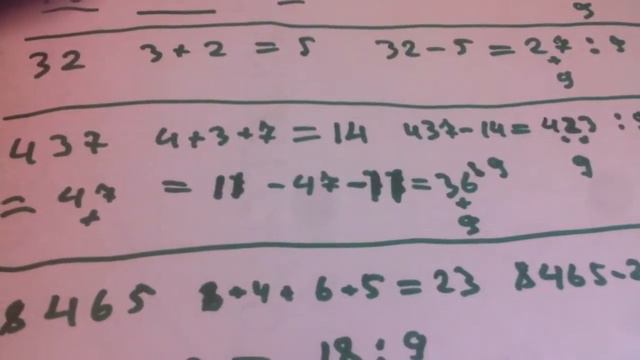 9
32 3 + 2 = 5 32 - 5 = 27 : 9
+
9
437 4 + 3 + 7 = 14 437 - 14 = 423 : 9
9
= 47 = 11 - 47 - 11 = 36 : 9
+ +
9
8465 8 + 4 + 6 + 5 = 23 8465 - 2
= 18 : 9